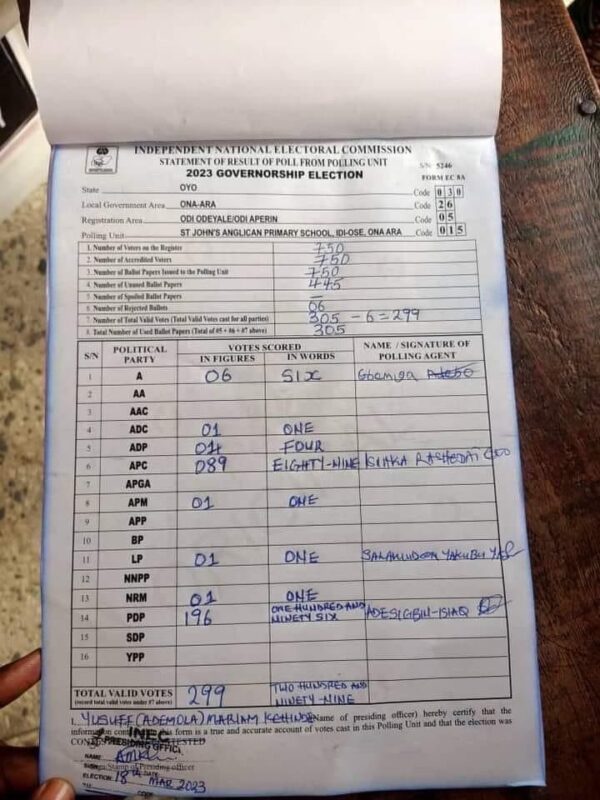 INDEPENDENT NATIONAL ELECTORAL COMMISSION
STATEMENT OF RESULT OF POLL FROM POLLING UNIT
S/N 5246
2023 GOVERNORSHIP ELECTION
FORM EC 8A
State OYO Code 030
Local Government Area ONA-ARA Code 26
Registration Area ODI ODEYALE/ODI APERIN Code 05
Polling Unit ST JOHN'S ANGLICAN PRIMARY SCHOOL, IDI-OSE, ONA ARA Code 015
1. Number of Voters on the Register 750
2. Number of Accredited Voters 750
3. Number of Ballot Papers Issued to the Polling Unit 750
4. Number of Unused Ballot Papers 445
5. Number of Spoiled Ballot Papers –
6. Number of Rejected Ballots 06
7. Number of Total Valid Votes (Total Valid Votes cast for all parties) 305 – 6 = 299
8. Total Number of Used Ballot Papers (Total of #5 + #6 + #7 above) 305
S/N POLITICAL PARTY VOTES SCORED IN FIGURES IN WORDS NAME / SIGNATURE OF POLLING AGENT
1 A 06 SIX Gbemiga
2 AA
3 AAC
4 ADC 01 ONE
5 ADP 04 FOUR
6 APC 089 EIGHTY-NINE ISIAKA RASHEDAT
7 APGA
8 APM 01 ONE
9 APP
10 BP
11 LP 01 ONE YAKUBU
12 NNPP
13 NRM 01 ONE
14 PDP 196 ONE HUNDRED AND NINETY SIX ADESIGBIN-ISHAQ
15 SDP
16 YPP
TOTAL VALID VOTES 299 TWO HUNDRED AND NINETY-NINE
(record total valid votes under #7 above)
I, YUSUFF (ADEMOLA) MARIAM KEHINDE (Name of presiding officer) hereby certify that the
information form is a true and accurate account of votes cast in this Polling Unit and that the election was
INEC
PRESIDING OFFICE
NAME
SIGN DATE
ELECTION: 18TH MAR 2023
CODE